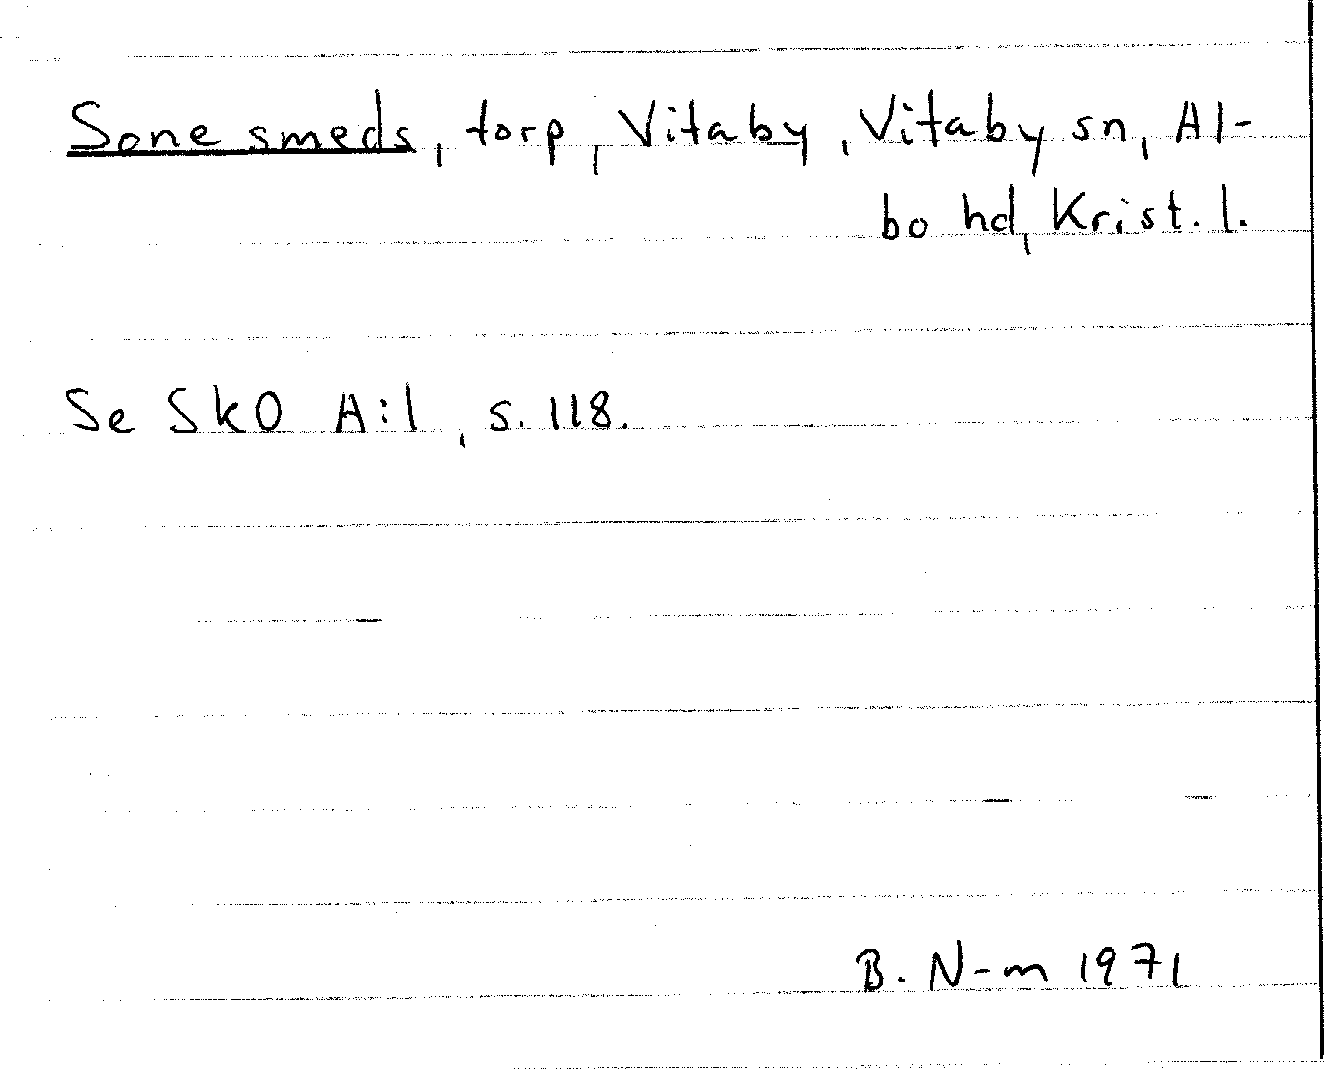 Sone smeds, torp, Vitaby, Vitaby sn, Al-
bo hd, Krist. l.
Se SkO A:1, s. 118.
B. N-m 1971